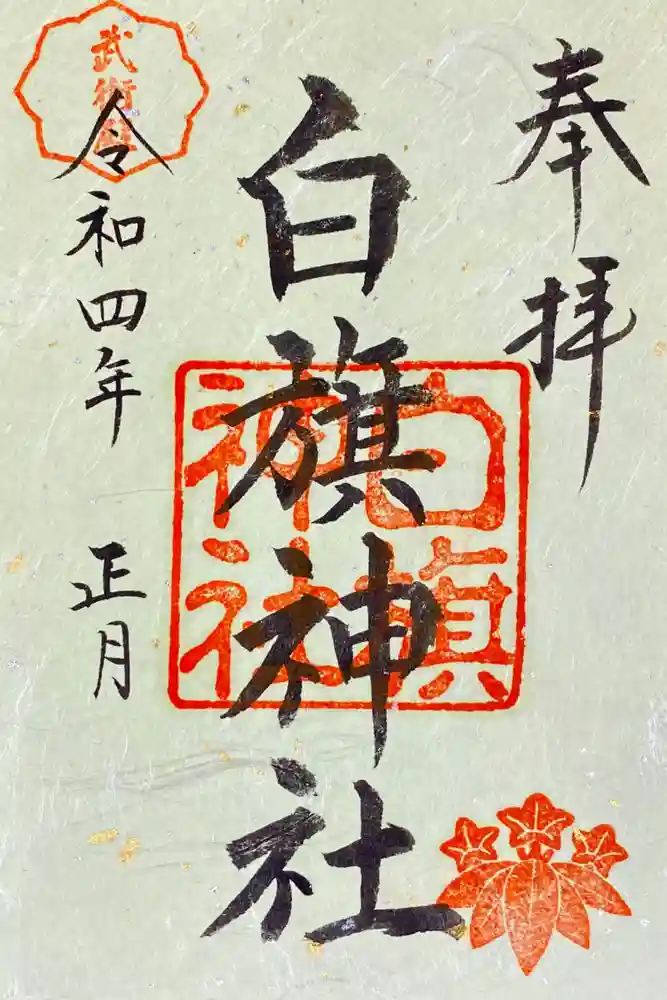 奉拝
白旗神社
白旗
神社
令和四年 正月
武術